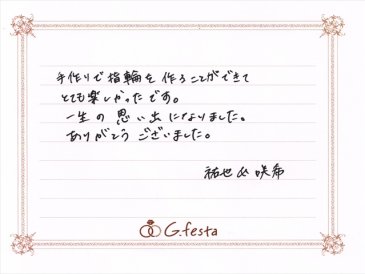 手作りで指輪を作ることができて
とても楽しかったです。
一生の思い出になりました。
ありがとうございました。
祐也 & 咲希
G.festa